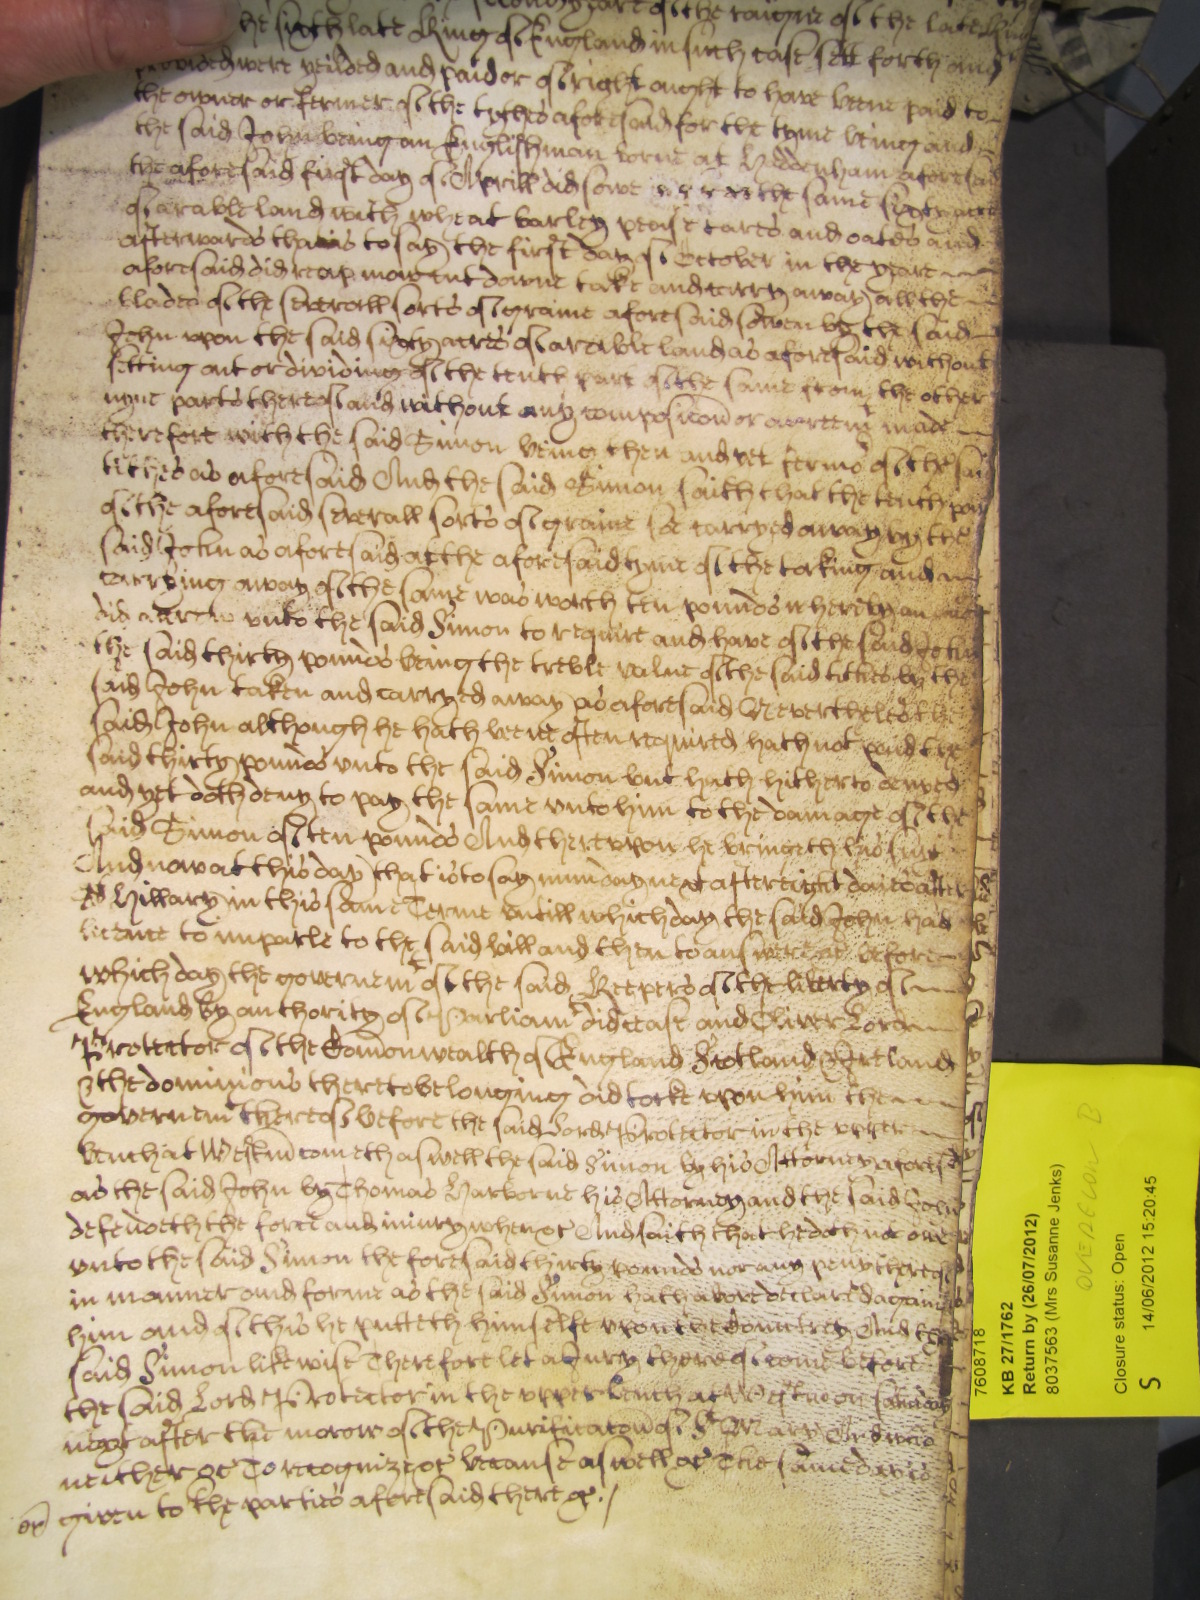 yeare of the raigne of the late
the sixth late King of England in such case sett forth and
provided were yeilded and paid or of right ought to have beene paid to
the owner or fermer of the tythes aforesaid for the tyme being and
the said John being an Englishman borne at Heddenham aforesaid
the aforesaid first day of Aprill did sowe the same sixty acres
of arable land with wheat barley pease tares and oates and
afterwards that is to say the first day of October in the yeare
aforesaid did reap mow cut downe take and carry away all the
blades of the severall sorts of graine aforesaid sowen by the said
John upon the said sixty acres of arable land as aforesaid without
setting out or dividing of the tenth part of the same from the other
nyne parts thereof and without any composicon or agreemt made
therefore with the said Simon being then and yet fermor of the said
tithes as aforesaid And the said Simon saith that the tenth part
of the aforesaid severall sorts of graine soe carryed away by the
said John as aforesaid at the aforesaid tyme of the taking and
carrying away of the same was worth ten pounds whereby an
did accrew unto the said Simon to require and have of the said John
the said thirty pounds being the treble value of the said tithes by the
said John taken and carryed away as aforesaid Neverthelesse the
said John although he hath beene often required hath not paid the
said thirty pounds unto the said Simon but hath hitherto denyed
and yet doth deny to pay the same unto him to the damage of the
said Simon of ten pounds And thereupon he bringeth his suit
And now at this day that is to say munday next after eight dayes after
St Hillary in this same Terme untill which day the said John had
licence to imparle to the said bill and then to answere &c before
which day the governemt of the said Keepers of the liberty of
England by authority of Parliamt did cease and Oliver Lord
Protector of the Comonwealth of England Scotland & Ireland
& the dominions thereto belonging did take upon him the
governemt thereof before the said Lord Protector in the upper
bench at Westm cometh aswell the said Simon by his Attorney aforesd
as the said John by Thomas Harborne his Attorney and the said John
defendeth the force and iniury when &c And saith that he doth not owe
unto the said Simon the foresaid thirty pounds nor any peny thereof
in manner and forme as the said Simon hath above declared against
him and of this he putteth himselfe upon the Countrey And the
said Simon likewise Therefore let a Jury thereof come before
the said Lord Protector in the upper bench at Westm on
next after the morow of the Purificacon of St Mary And who
neither &c To recognize &c because aswell &c The same day is
given to the parties aforesaid there &c./
7608718
KB 27/1762
Return by (26/07/2012)
8037563 (Mrs Susanne Jenks)
OVERCOM B
Closure status: Open
S 14/06/2012 15:20:45